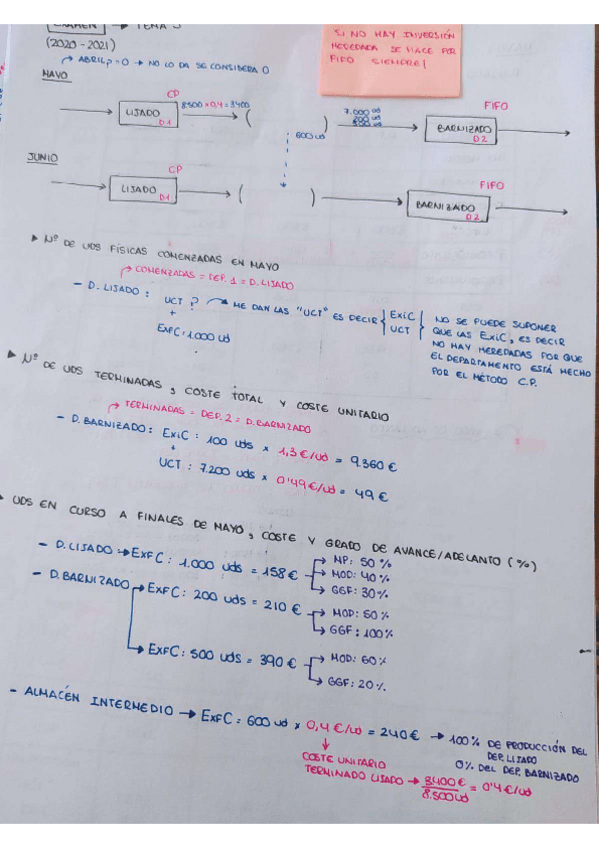 EXAMEN → TEMA 3
(2020-2021)
SI NO HAY INVERSIÓN
HEREDADA SE HACE POR
FIFO SIEMPRE!
ABRILp=0 → NO LO DA SE CONSIDERA 0
MAYO
CP
8500 x 0,4 = 3400
LIJADO
D1
600 ud
7.000 ud
FIFO
BARNIZADO
D2
JUNIO
CP
LIJADO
D1
FIFO
BARNIZADO
D2
▶ Nº DE UDS FÍSICAS COMENZADAS EN MAYO
COMENZADAS = DEP. 1 = D. LIJADO
- D. LIJADO : UCT ? ME DAN LAS "UCT" ES DECIR { ExiC
UCT
+
ExfC: 1.000 ud
NO SE PUEDE SUPONER
QUE LAS ExiC, ES DECIR
NO HAY HEREDADAS POR QUE
EL DEPARTAMENTO ESTÁ HECHO
POR EL MÉTODO C.P.
▶ Nº DE UDS TERMINADAS, COSTE TOTAL Y COSTE UNITARIO
TERMINADAS = DEP. 2 = D. BARNIZADO
- D. BARNIZADO: ExiC : 100 uds x 1,3 €/ud = 9.360 €
+
UCT : 7.200 uds x 0'49 €/ud = 49 €
UDS EN CURSO A FINALES DE MAYO, COSTE Y GRADO DE AVANCE/ADELANTO (%)
- D. LIJADO → ExfC: 1.000 uds = 158 € → MP: 50%
→ MOD: 40%
→ GGF: 30%
- D. BARNIZADO → ExfC: 200 uds = 210 € → MOD: 50%
→ GGF: 100%
→ ExfC: 500 uds = 390 € → MOD: 60%
→ GGF: 20%.
- ALMACÉN INTERMEDIO → ExfC = 600 ud x 0,4 €/ud = 240 € → 100% DE PRODUCCIÓN DEL
DEP. LIJADO
0% DEL DEP. BARNIZADO
COSTE UNITARIO
TERMINADO LIJADO → 3400 € / 8.500 ud = 0'4 €/ud